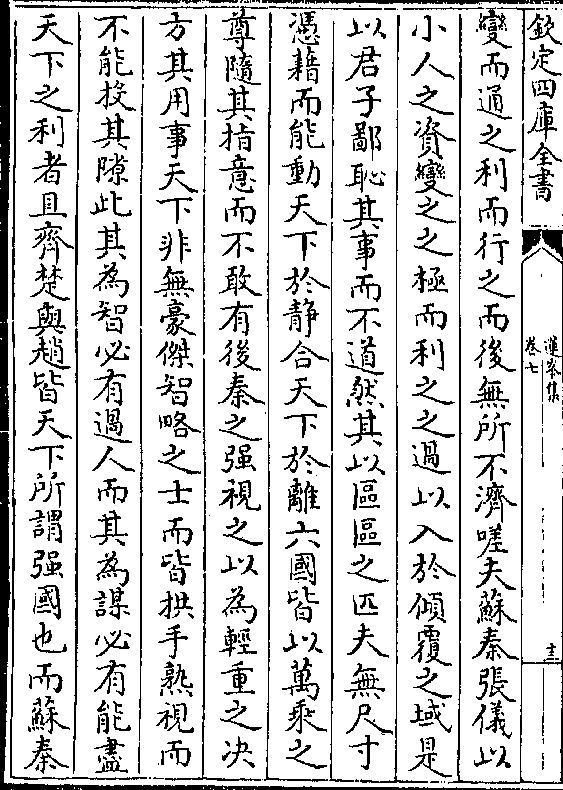 欽定四庫全書
蓮峯集
卷七
十三
變而通之利而行之而後無所不濟嗟夫蘇秦張儀以
小人之資變之之極而利之之過以入於傾覆之域是
以君子鄙恥其事而不道然其以區區之匹夫無尺寸
憑藉而能動天下於静合天下於離六國皆以萬乘之
尊隨其指意而不敢有後秦之强視之以為輕重之决
方其用事天下非無豪傑智略之士而皆拱手熟視而
不能投其隙此其為智必有過人而其為謀必有能盡
天下之利者且齊楚與趙皆天下所謂强國也而蘇秦